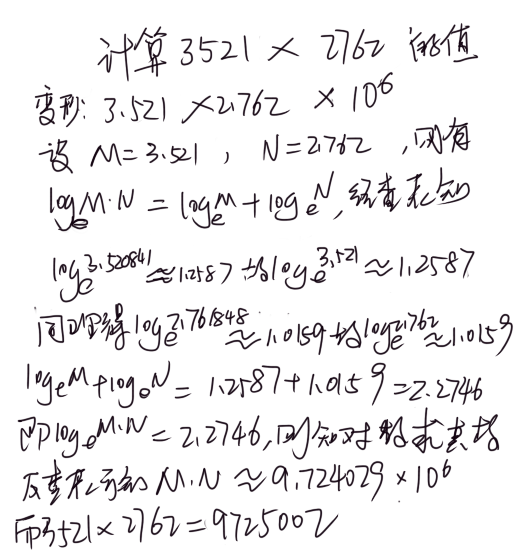 计算3521×2762的值
变形:3.521×2.762×10⁶
设M=3.521,N=2.762,则有
logₑM·N=logₑM+logₑN,经查表知
logₑ3.520841≈1.2587故logₑ3.521≈1.2587
同理得logₑ2.761848≈1.0159故logₑ2.762≈1.0159
logₑM+logₑN=1.2587+1.0159=2.2746
即logₑM·N=2.2746,则知对数求真数
反查表可知M·N≈9.724029×10⁶
而3521×2762=9725002